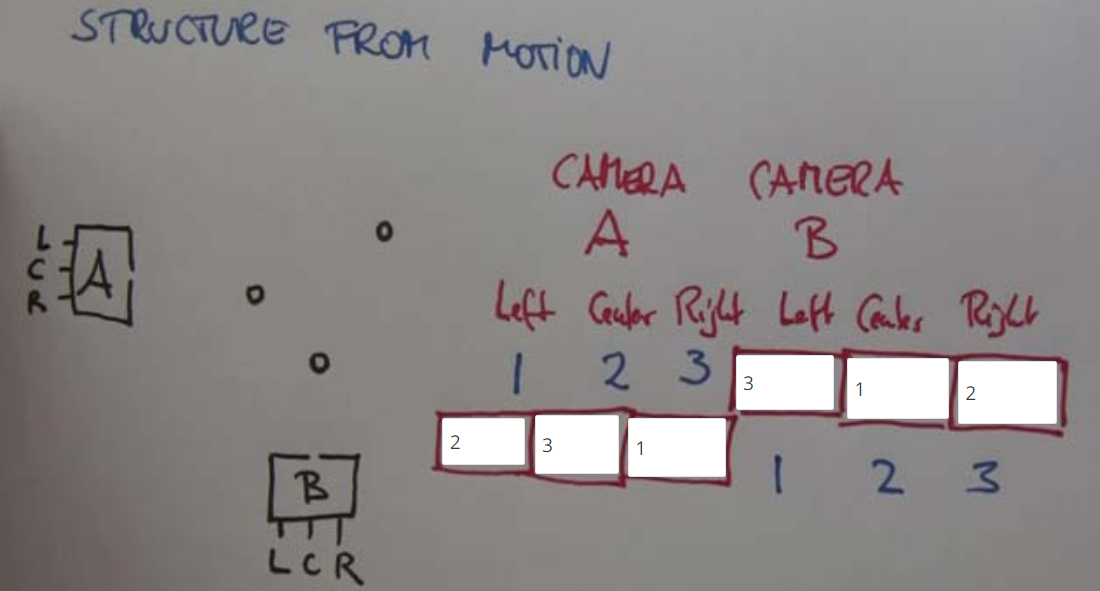 STRUCTURE FROM MOTION
CAMERA CAMERA
A B
L
C A
R
Left Center Right Left Center Right
1 2 3 3 1 2
2 3 1 1 2 3
B
L C R